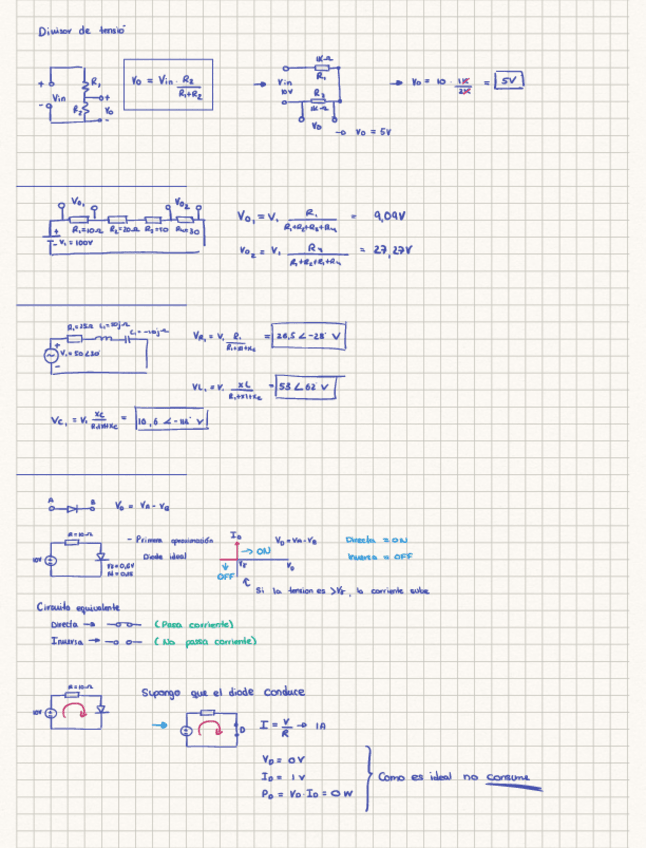 Divisor de tensió
+ Vin - R₁ R₂ + Vo -
Vo = Vin · R₂ / R₁+R₂
Vin 10V 1K Ω R₁ R₂ 1K Ω Vo
→ Vo = 5V
→ Vo = 10 · 1K / 2K = 5V
Vo₁ Vo₂
R₁=10Ω R₂=20Ω
+ - V₁ = 100V
Vo₁ = V₁ R₁ / R₁+R₂+R₃+R₄ = 9,09V
Vo₂ = V₁ R₄ / R₁+R₂+R₃+R₄ = 27,27V
R₁=25Ω
V₁ = 50∠30°
VR₁ = V₁ = 26,5 ∠-28° V
VL₁ = V₁ XL = 53 ∠62° V
VC₁ = V₁ XC =
A B
V₀ = VA - VB
R=10Ω
10V
- Primera aproximación
Diode ideal
I_D V_D = VA - VB
→ ON
OFF Vγ V_D
Directa = ON
Inversa = OFF
Si la tension es >Vγ, la corriente sube
Circuito equivalente
Directa → (Pasa corriente)
Inversa → (No passa corriente)
R=10Ω
10V
Supongo que el diode conduce
→ D
I = V / R → 1A
V_D = 0V
I_D = 1V
P_D = V_D · I_D = 0W
Como es ideal no consume